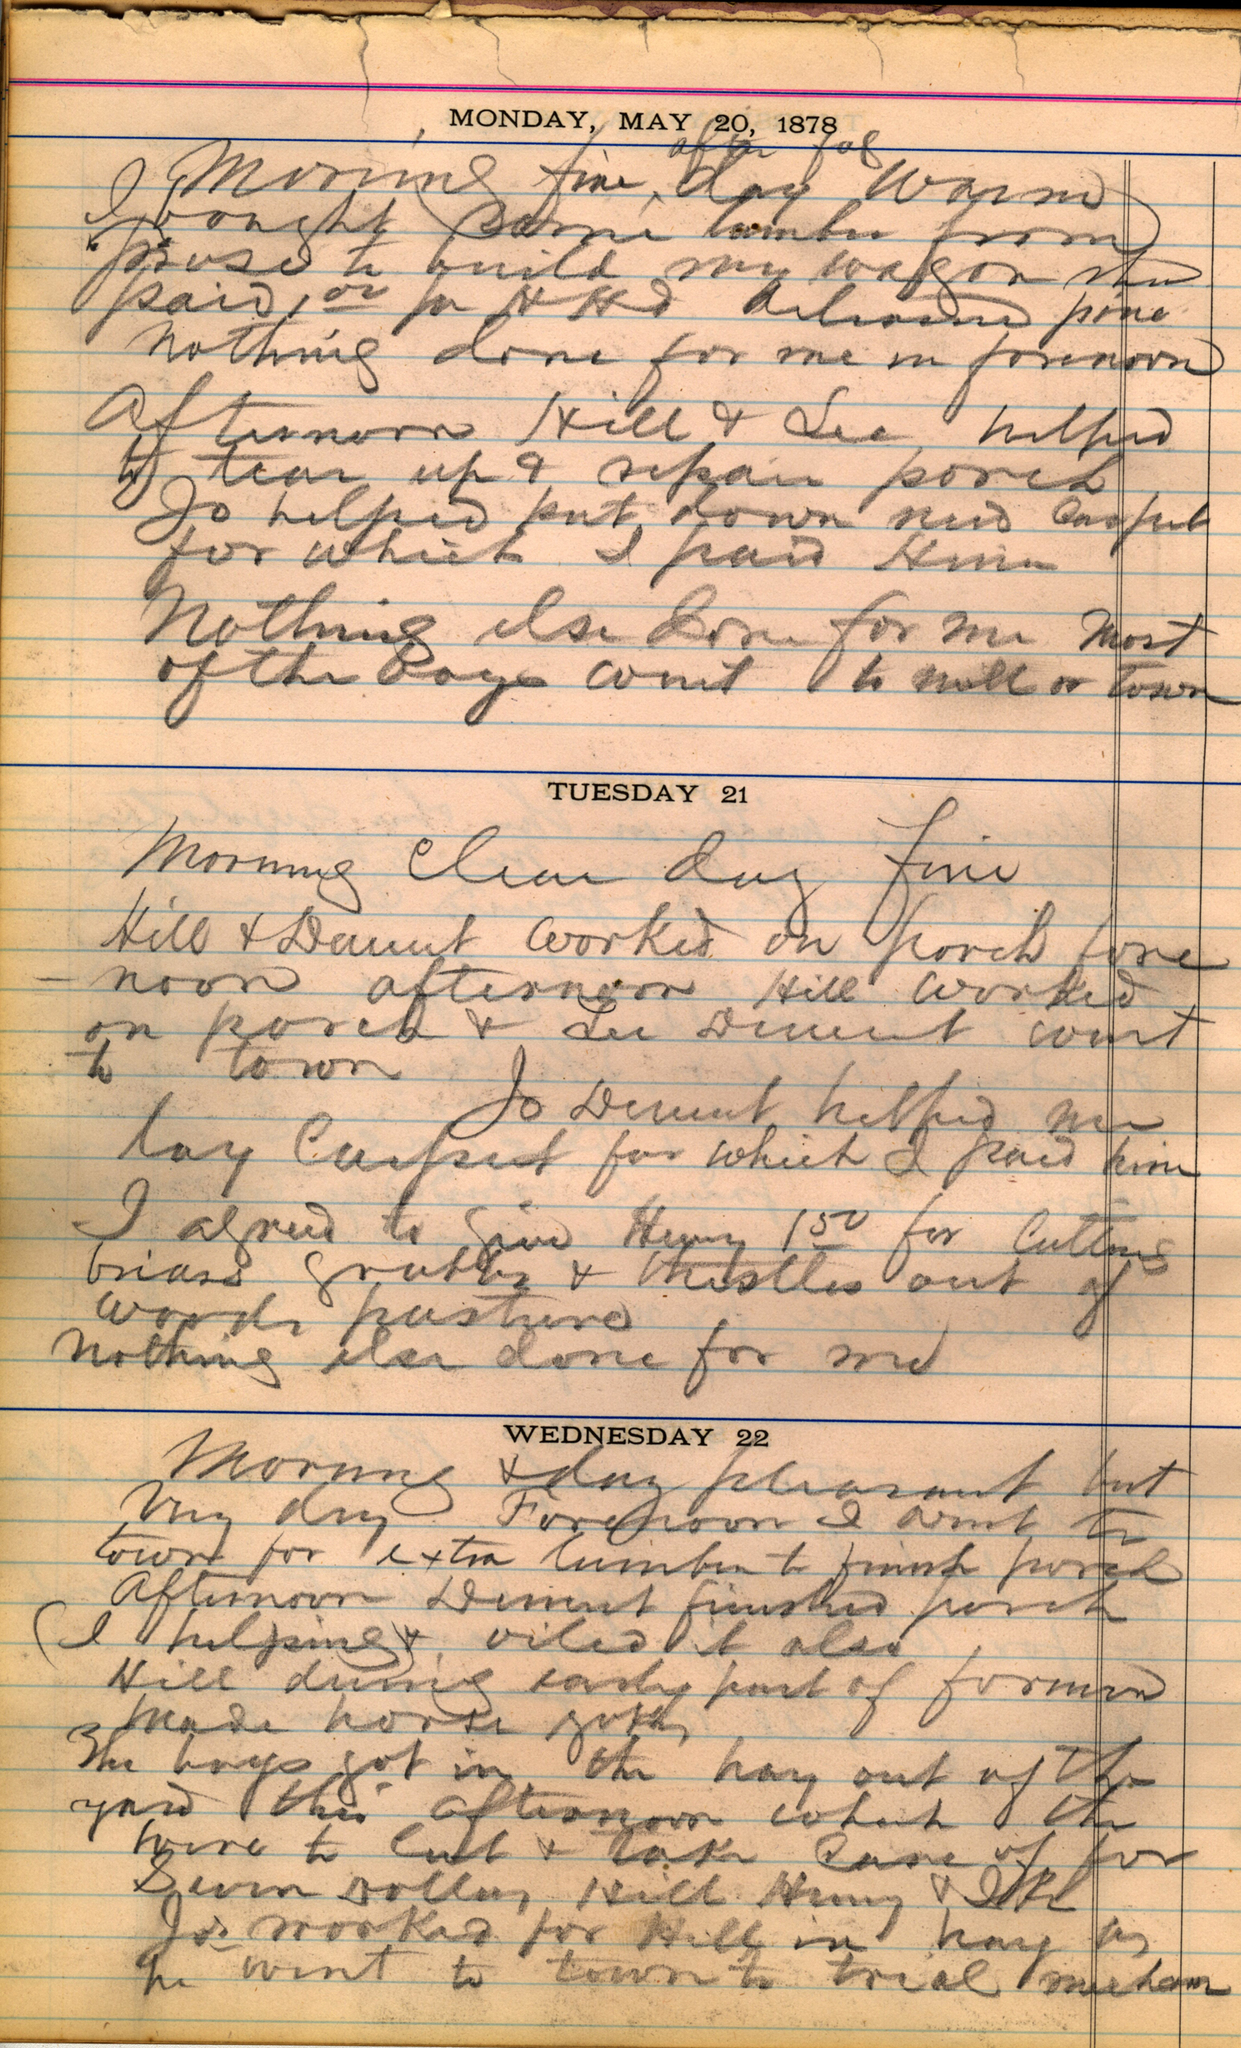 MONDAY, MAY 20, 1878
after fog
Morning fine, day Warm
I bought some lumber from
to build my wagon
paid for
Nothing done for me in forenoon
Afternoon Hill & Lee helped
to tear up & repair porch
Jo helped put down new Carpet
for which I paid Him
Nothing else done for me Most
of the Boys went to mill or town
TUESDAY 21
Morning Clear day fine
Hill & Dement worked on porch fore
-noon afternoon Hill worked
on porch & Lee Dement went
to town
Jo Dement helped me
lay Carpet for which I paid him
I agreed to give Henry 1 50 for Cutting
briars grubbs & thistles out of
woods pasture
Nothing else done for me
WEDNESDAY 22
Morning & day pleasant but
Very dry Forenoon I went to
town for extra lumber to finish porch
Afternoon Dement finished porch
(I helping) & oiled it also
Hill during early part of forenoon
Made horse yoke
The boys got in the hay out of the
yard this afternoon which the
were to Cut & take Care of for
Seven Dollars Hill Henry &
Jo worked for Hill in hay as
he went to town to trial